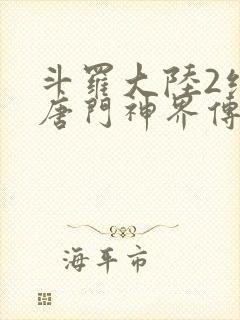 斗羅大陸2絕
唐門神界傳
海平市